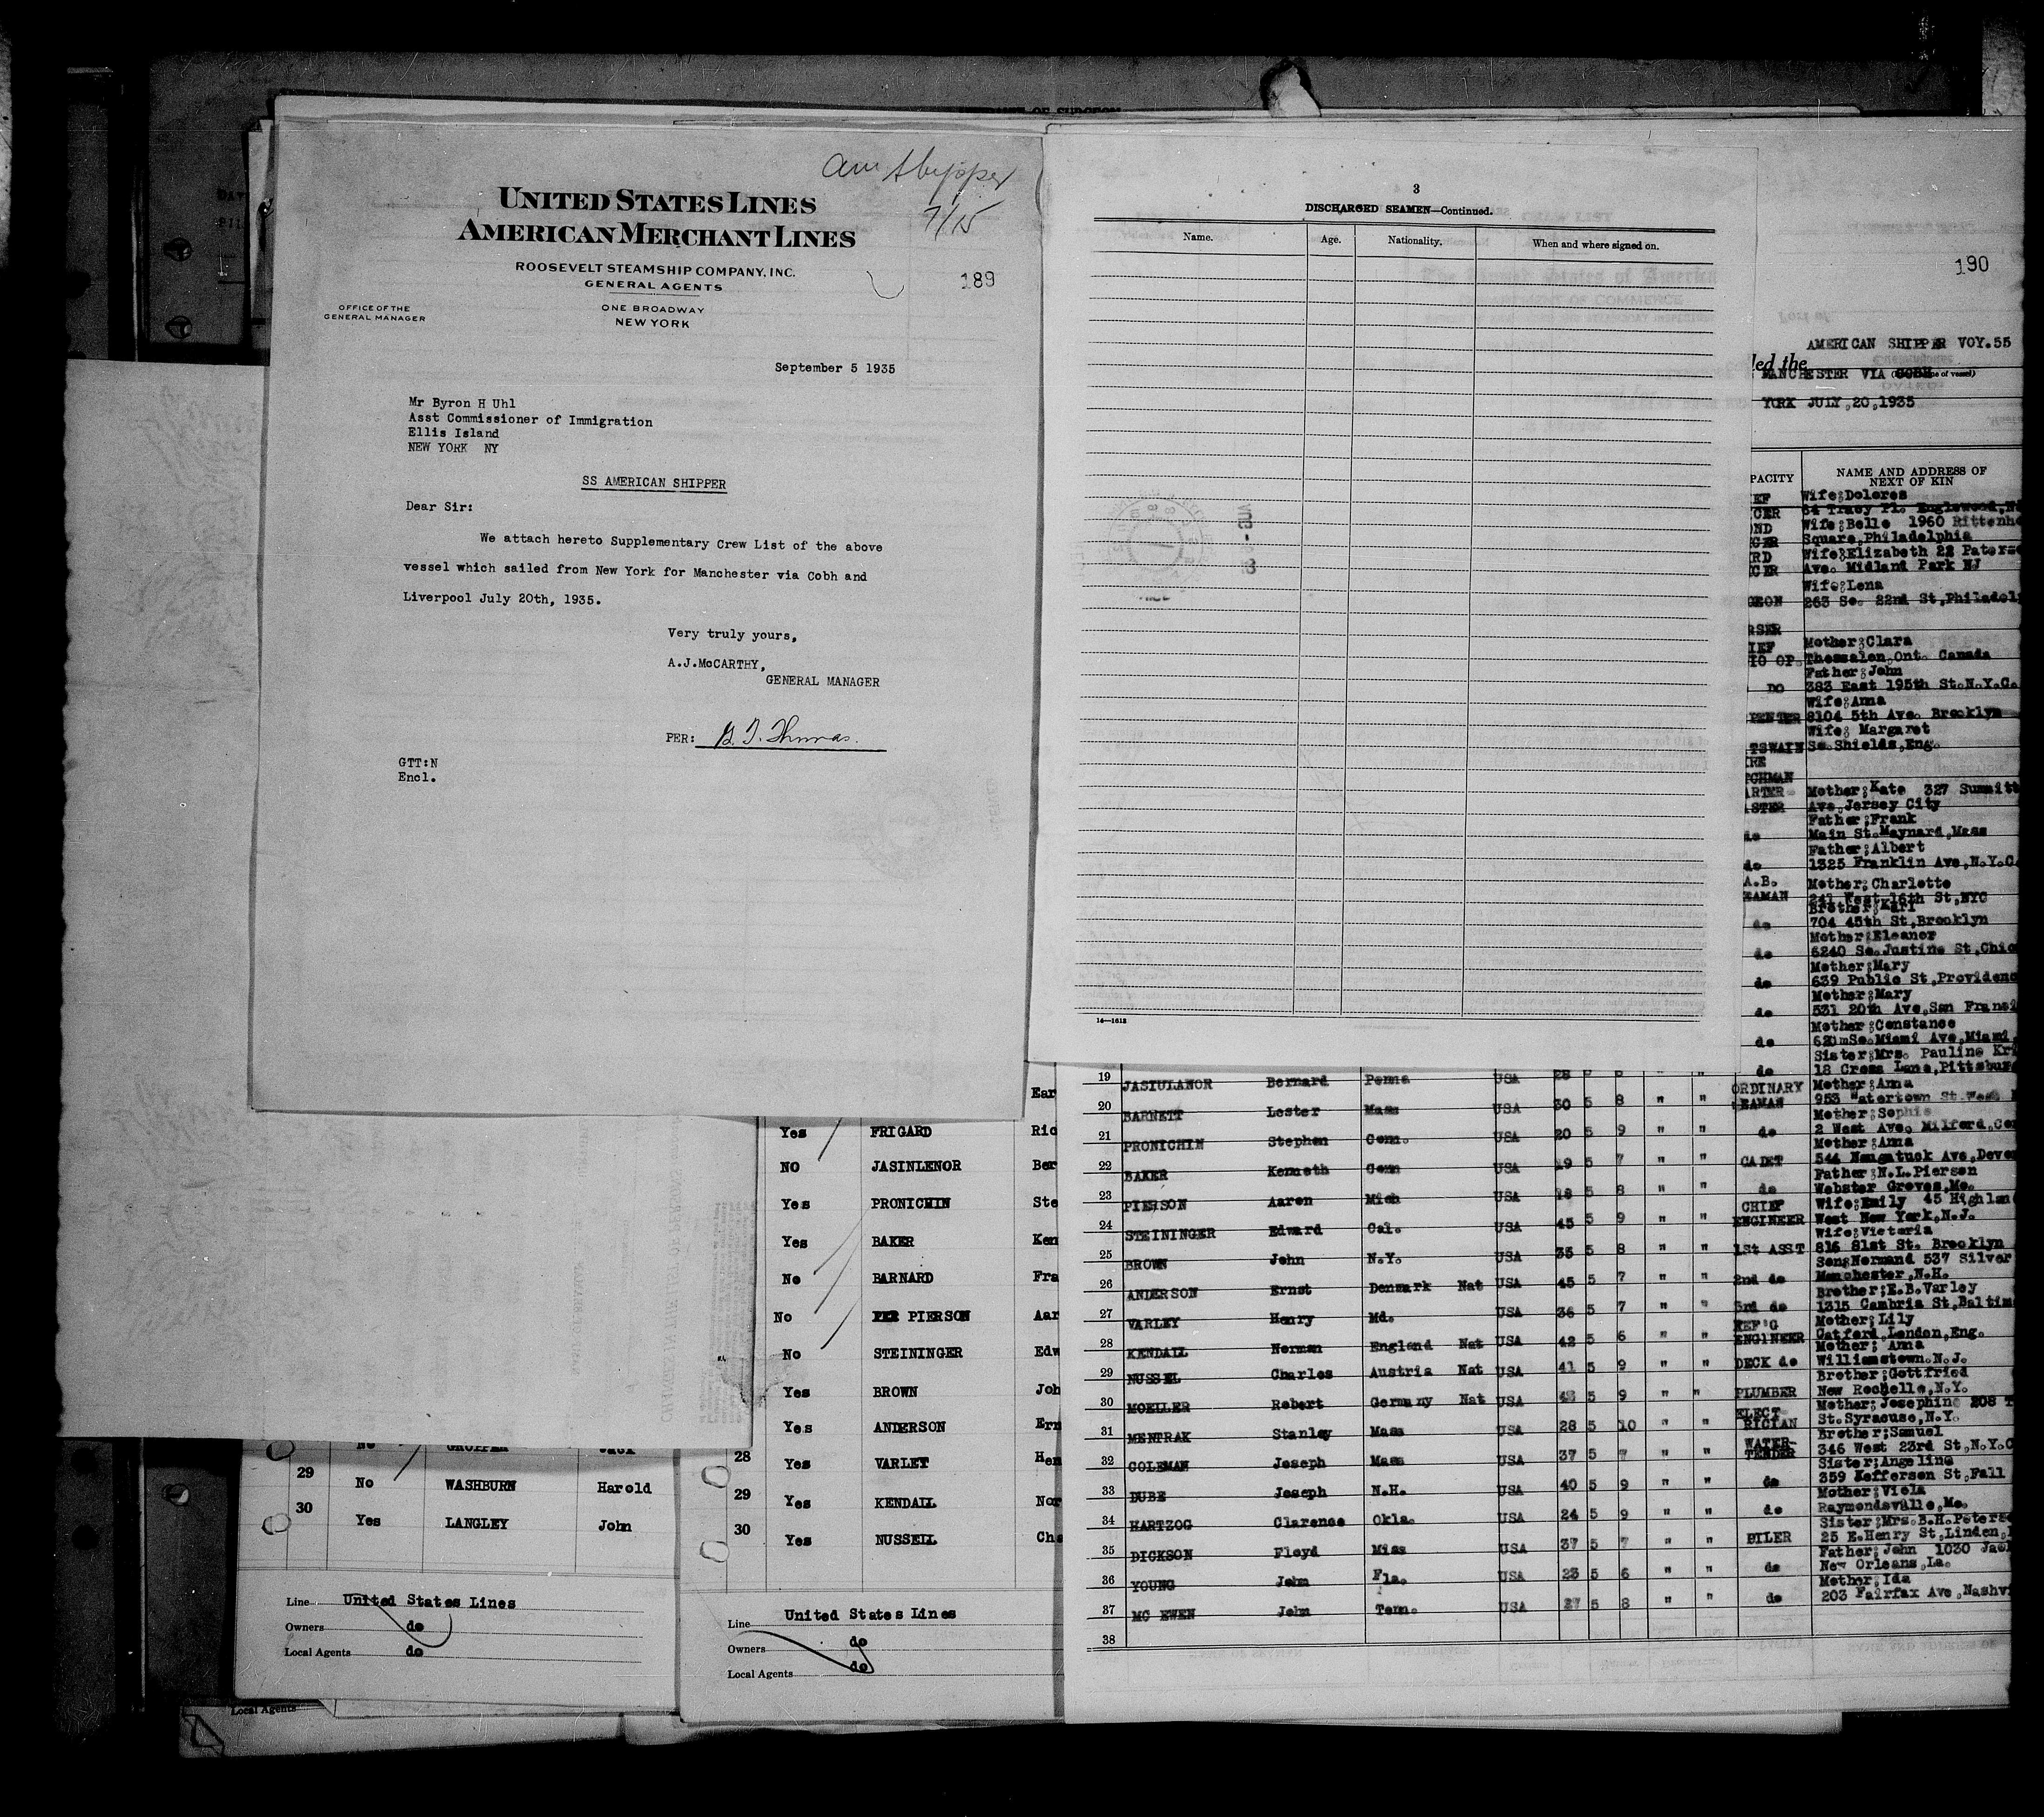 Am Shipper
7/15
UNITED STATES LINES
AMERICAN MERCHANT LINES
ROOSEVELT STEAMSHIP COMPANY, INC.
GENERAL AGENTS
189
OFFICE OF THE
GENERAL MANAGER
ONE BROADWAY
NEW YORK
September 5 1935
Mr Byron H Uhl
Asst Commissioner of Immigration
Ellis Island
NEW YORK NY
SS AMERICAN SHIPPER
Dear Sir:
We attach hereto Supplementary Crew List of the above
vessel which sailed from New York for Manchester via Cobh and
Liverpool July 20th, 1935.
Very truly yours,
A.J.McCARTHY,
GENERAL MANAGER
PER:
GTT:N
Encl.
3
DISCHARGED SEAMEN—Continued.
Name. Age. Nationality. When and where signed on.
14—1612
190
AMERICAN SHIPPER VOY.55
led the
MANCHESTER VIA COBH
YORK JULY,20,1935
PACITY NAME AND ADDRESS OF
NEXT OF KIN
Wife;Dolores
64 Tracy Pl. Englewood,N
Wife;Belle 1960 Rittenh
Square,Philadelphia
Wife;Elizabeth 22 Paters
Ave. Midland Park NJ
Wife;Lena
GEON 263 So. 22nd St,Philadel
RSER
IEF Mother;Clara
IO OP. Thessalon,Ont. Canada
Father;John
DO 383 East 195th St.N.Y.C.
Wife;Anna
PENTER 8104 5th Ave. Brooklyn
Wife; Margaret
TSWAIN So.Shields,Eng.
TCHMAN
ARTER Mother;Kate 327 Summitt
ASTER Ave,Jersey City
Father;Frank
do Main St.Maynard,Mass
Father;Albert
do 1325 Franklin Ave,N.Y.C.
A.B. Mother;Charlotte
EAMAN 241 West 16th St,NYC
Brother;Karl
do 704 45th St,Brooklyn
Mother;Eleanor
do 6240 So.Justine St,Chic
Mother;Mary
do 639 Public St,Providenc
Mother;Mary
do 531 20th Ave,San Franci
Mother;Constance
do So.Miami Ave,Miami,
Sister;Mrs. Pauline Kri
do 18 Cross Lane,Pittsburg
19 JASIULANOR Bernard Penna USA 28 5 8 " " ORDINARY Mother;Anna
SEAMAN 953 Watertown St.West
20 BARNETT Lester Mass USA 30 5 8 " "
Mother;Sophie
21 PRONICHIN Stephen Conn. USA 20 5 9 " " do 2 West Ave. Milford,Con
Mother;Anna
22 BAKER Kenneth Conn USA 19 5 7 " " CADET 544 Naugatuck Ave,Devon
Father;N.L.Pierson
23 PIERSON Aaron Mich USA 18 5 8 " " do Webster Groves,Mo.
CHIEF Wife;Emily 45 Highlan
24 STEININGER Edward Cal. USA 45 5 9 " " ENGINEER West New York,N.J.
Wife;Victoria
25 BROWN John N.Y. USA 35 5 8 " " 1St ASST 816 81st St. Brooklyn
Son;Normand 537 Silver
26 ANDERSON Ernst Denmark Nat USA 45 5 7 " " 2nd do Manchester,N.H.
Brother;E.B.Varley
27 VARLEY Henry Md. USA 36 5 7 " " 3rd do 1315 Cambria St,Baltim
REF'G Mother;Lily
28 KENDALL Norman England Nat USA 42 5 6 " " ENGINEER Catford,London,Eng.
Mother; Anna
29 NUSSEL Charles Austria Nat USA 41 5 9 " " DECK do Williamstown.N.J.
Brother;Gottfried
30 MOELLER Robert Germany Nat USA 43 5 9 " " PLUMBER New Rochelle,N.Y.
ELECT- Mother;Josephine 208 T
31 MENTRAK Stanley Mass USA 28 5 10 " " RICIAN St.Syracuse,N.Y.
WATER- Brother;Samuel
32 COLEMAN Joseph Mass USA 37 5 7 " " TENDER 346 West 23rd St,N.Y.C
Sister;Angeline
33 DUBE Joseph N.H. USA 40 5 9 " " do 359 Jefferson St,Fall
Mother;Viola
34 HARTZOG Clarence Okla. USA 24 5 9 " " do Raymondsville,Mo.
Sister;Mrs.B.H.Peters
35 DICKSON Floyd Miss USA 37 5 7 " " OILER 25 E.Henry St,Linden,
Father;John 1030 Jac
36 YOUNG John Fla. USA 23 5 6 " " do New Orleans,La.
Mother;Ida
37 MC EWEN John Tenn. USA 27 5 8 " " do 203 Fairfax Ave,Nashvi
38
Ear
Yes FRIGARD Ric
NO JASINLENOR Ber
Yes PRONICHIN Ste
Yes BAKER Ken
No BARNARD Fra
No PIERSON Aar
No STEININGER Edw
Yes BROWN Joh
Yes ANDERSON Ern
28 Yes VARLET Hen
29 Yes KENDALL Nor
30 Yes NUSSELL Cha
Line United States Lines
Owners do
Local Agents do
No GROPPER Jack
29 No WASHBURN Harold
30 Yes LANGLEY John
Line United States Lines
Owners do
Local Agents do
Local Agents